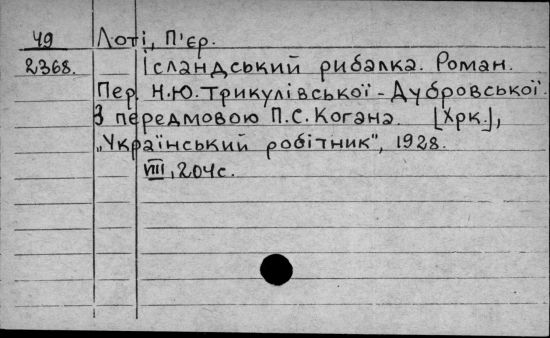 49 Лоті, П'єр.
2368. Ісландський рибалка. Роман.
Пер. Н.Ю. Трикулівської-Дубровської.
З передмовою П.С. Когана. [Хрк.],
„Український робітник", 1928.
VIII, 204с.